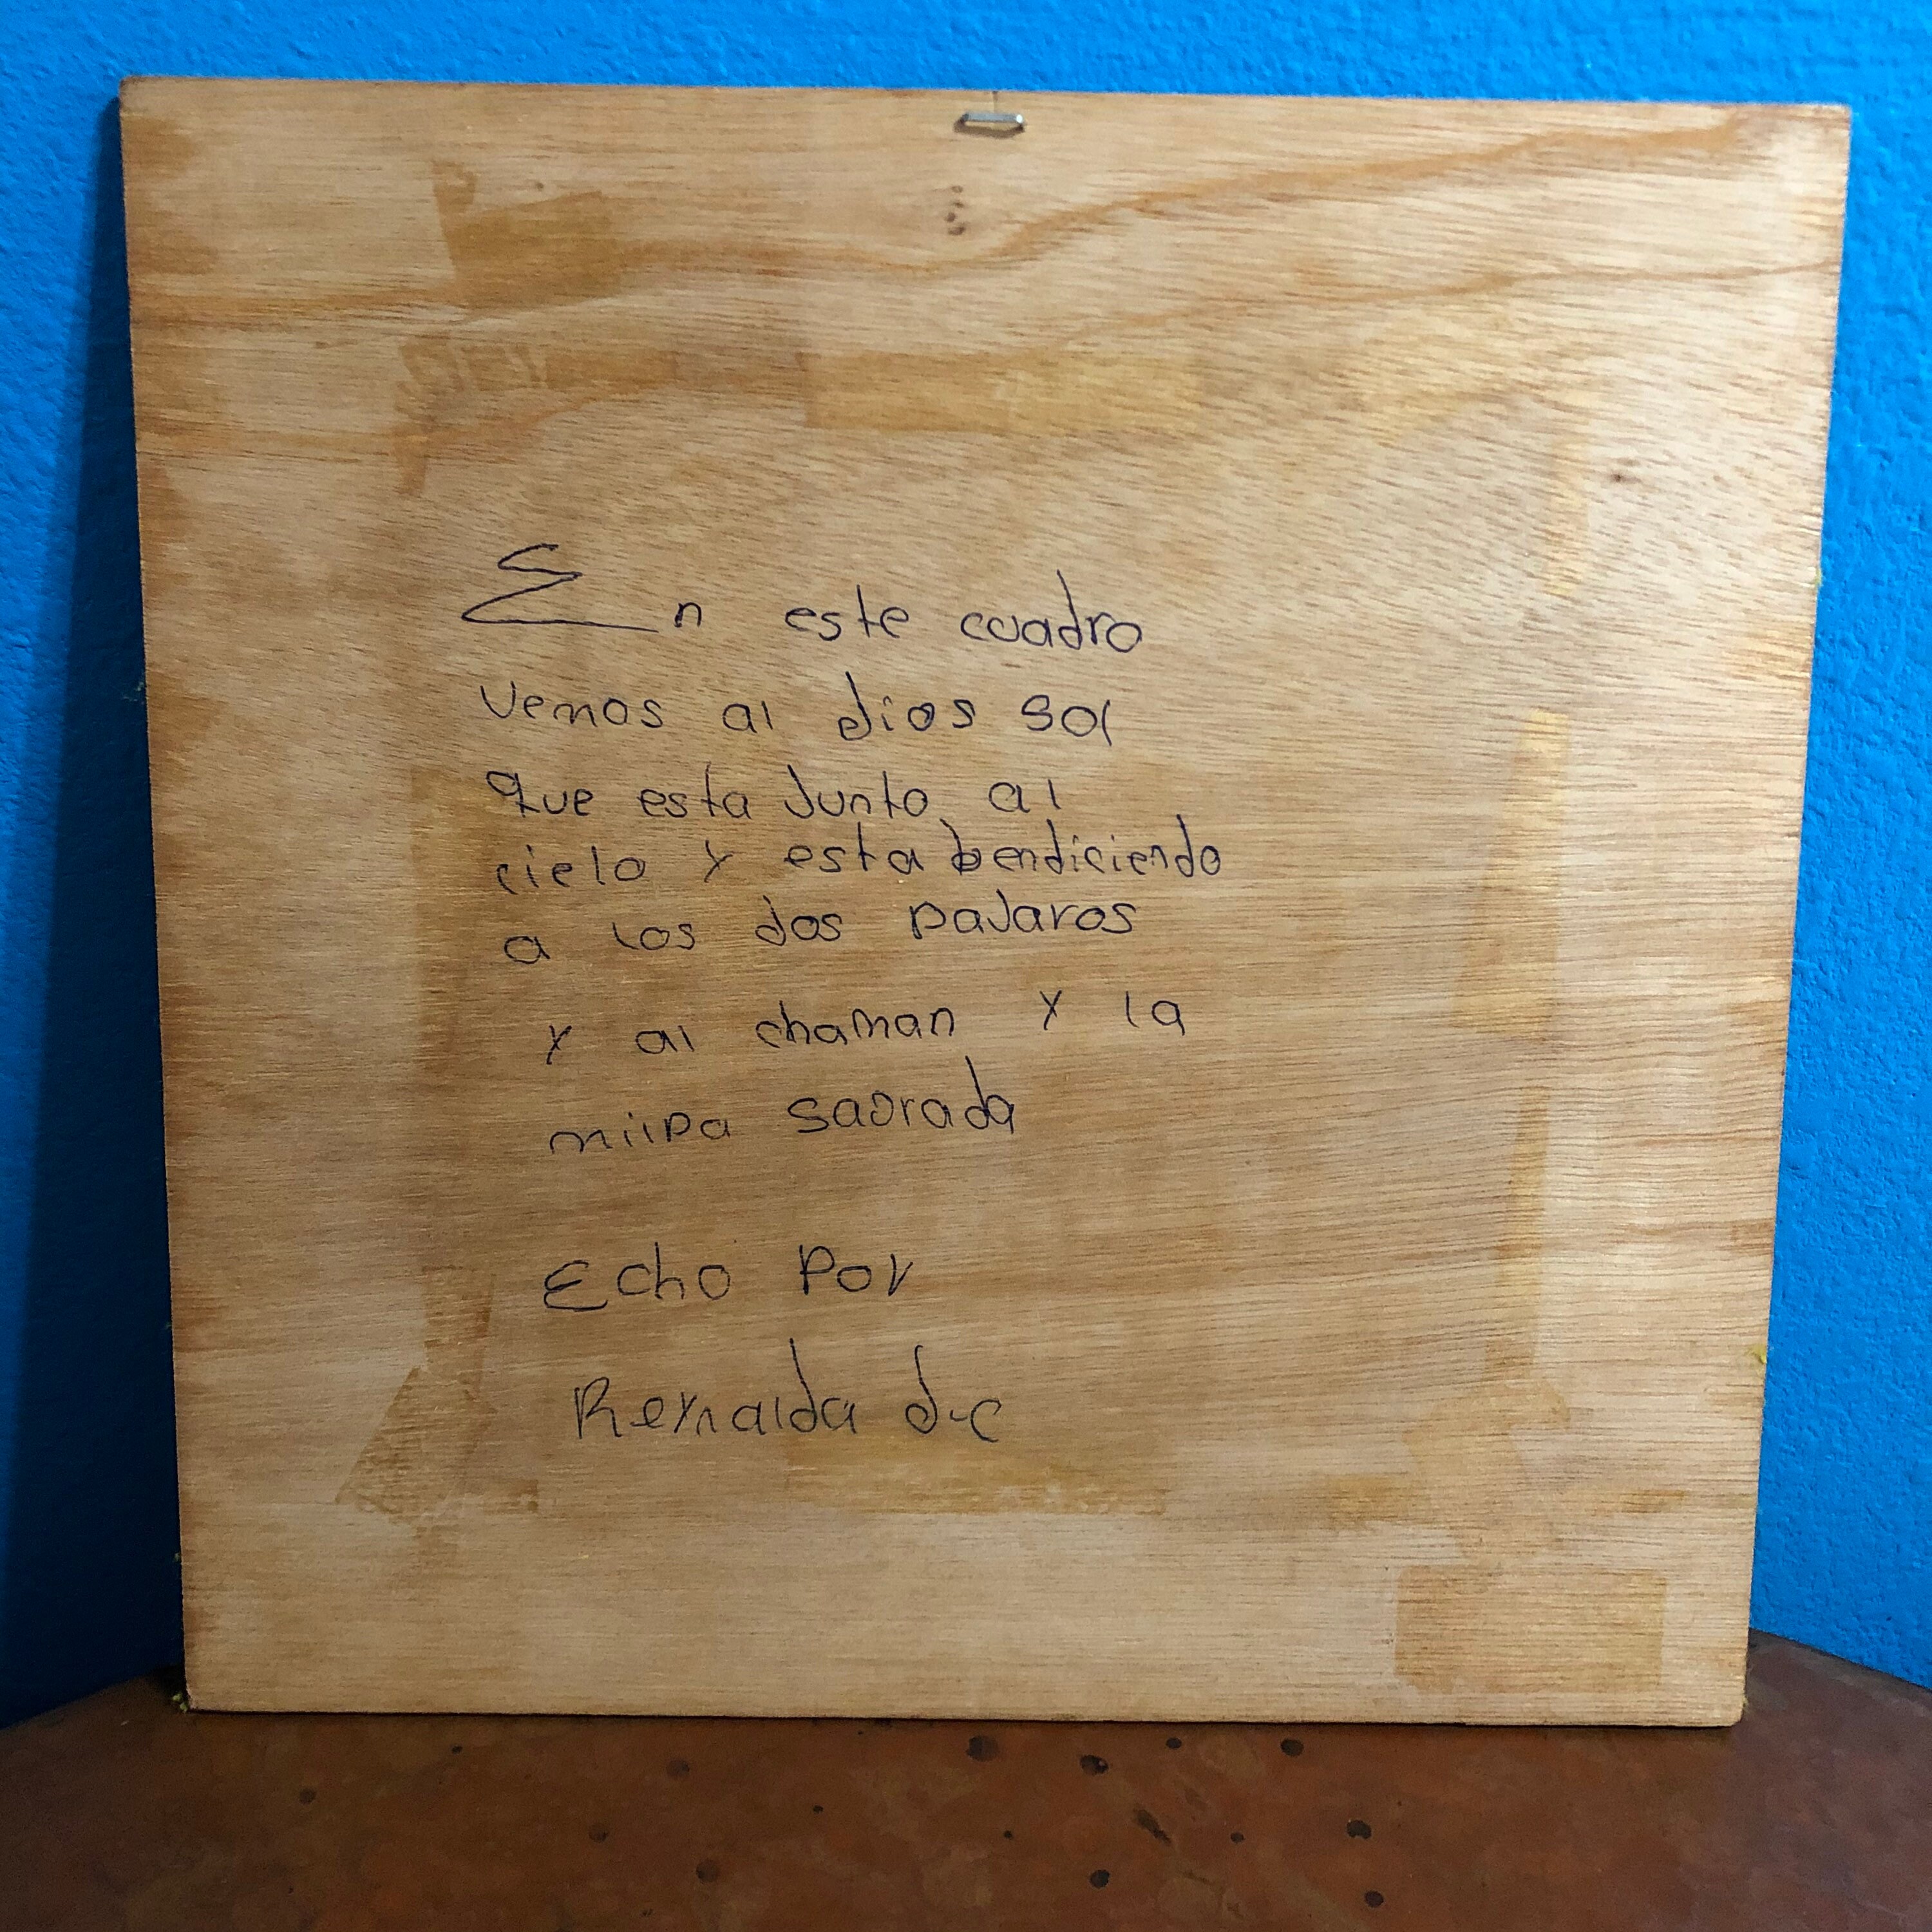 En este cuadro
vemos al dios sol
que esta Junto al
cielo y esta bendiciendo
a los dos paJaros
y al chaman y la
milpa sagrada
Echo Por
Reynalda d-c